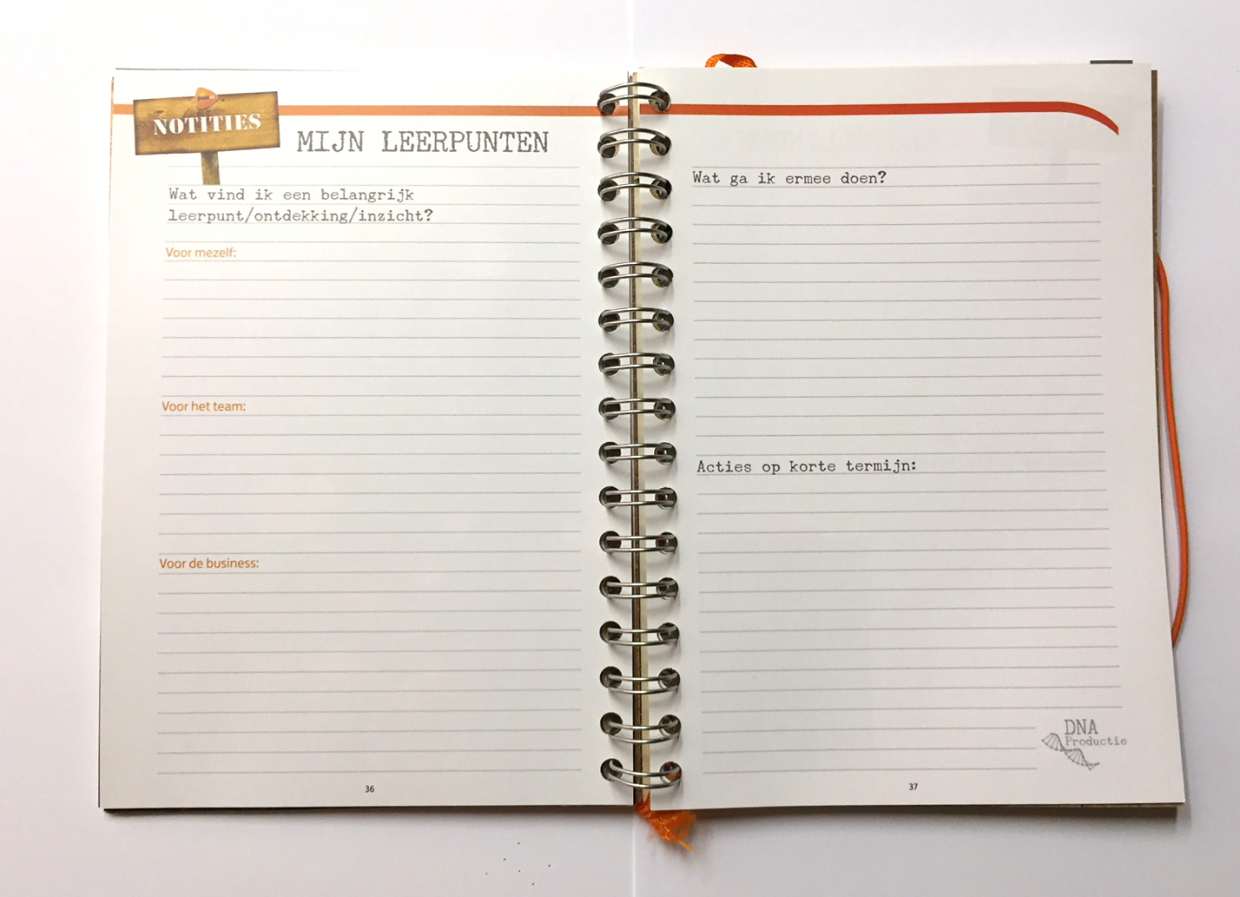 NOTITIES
MIJN LEERPUNTEN
Wat vind ik een belangrijk
leerpunt/ontdekking/inzicht?
Voor mezelf:
Voor het team:
Voor de business:
36
Wat ga ik ermee doen?
Acties op korte termijn:
DNA
Productie
37